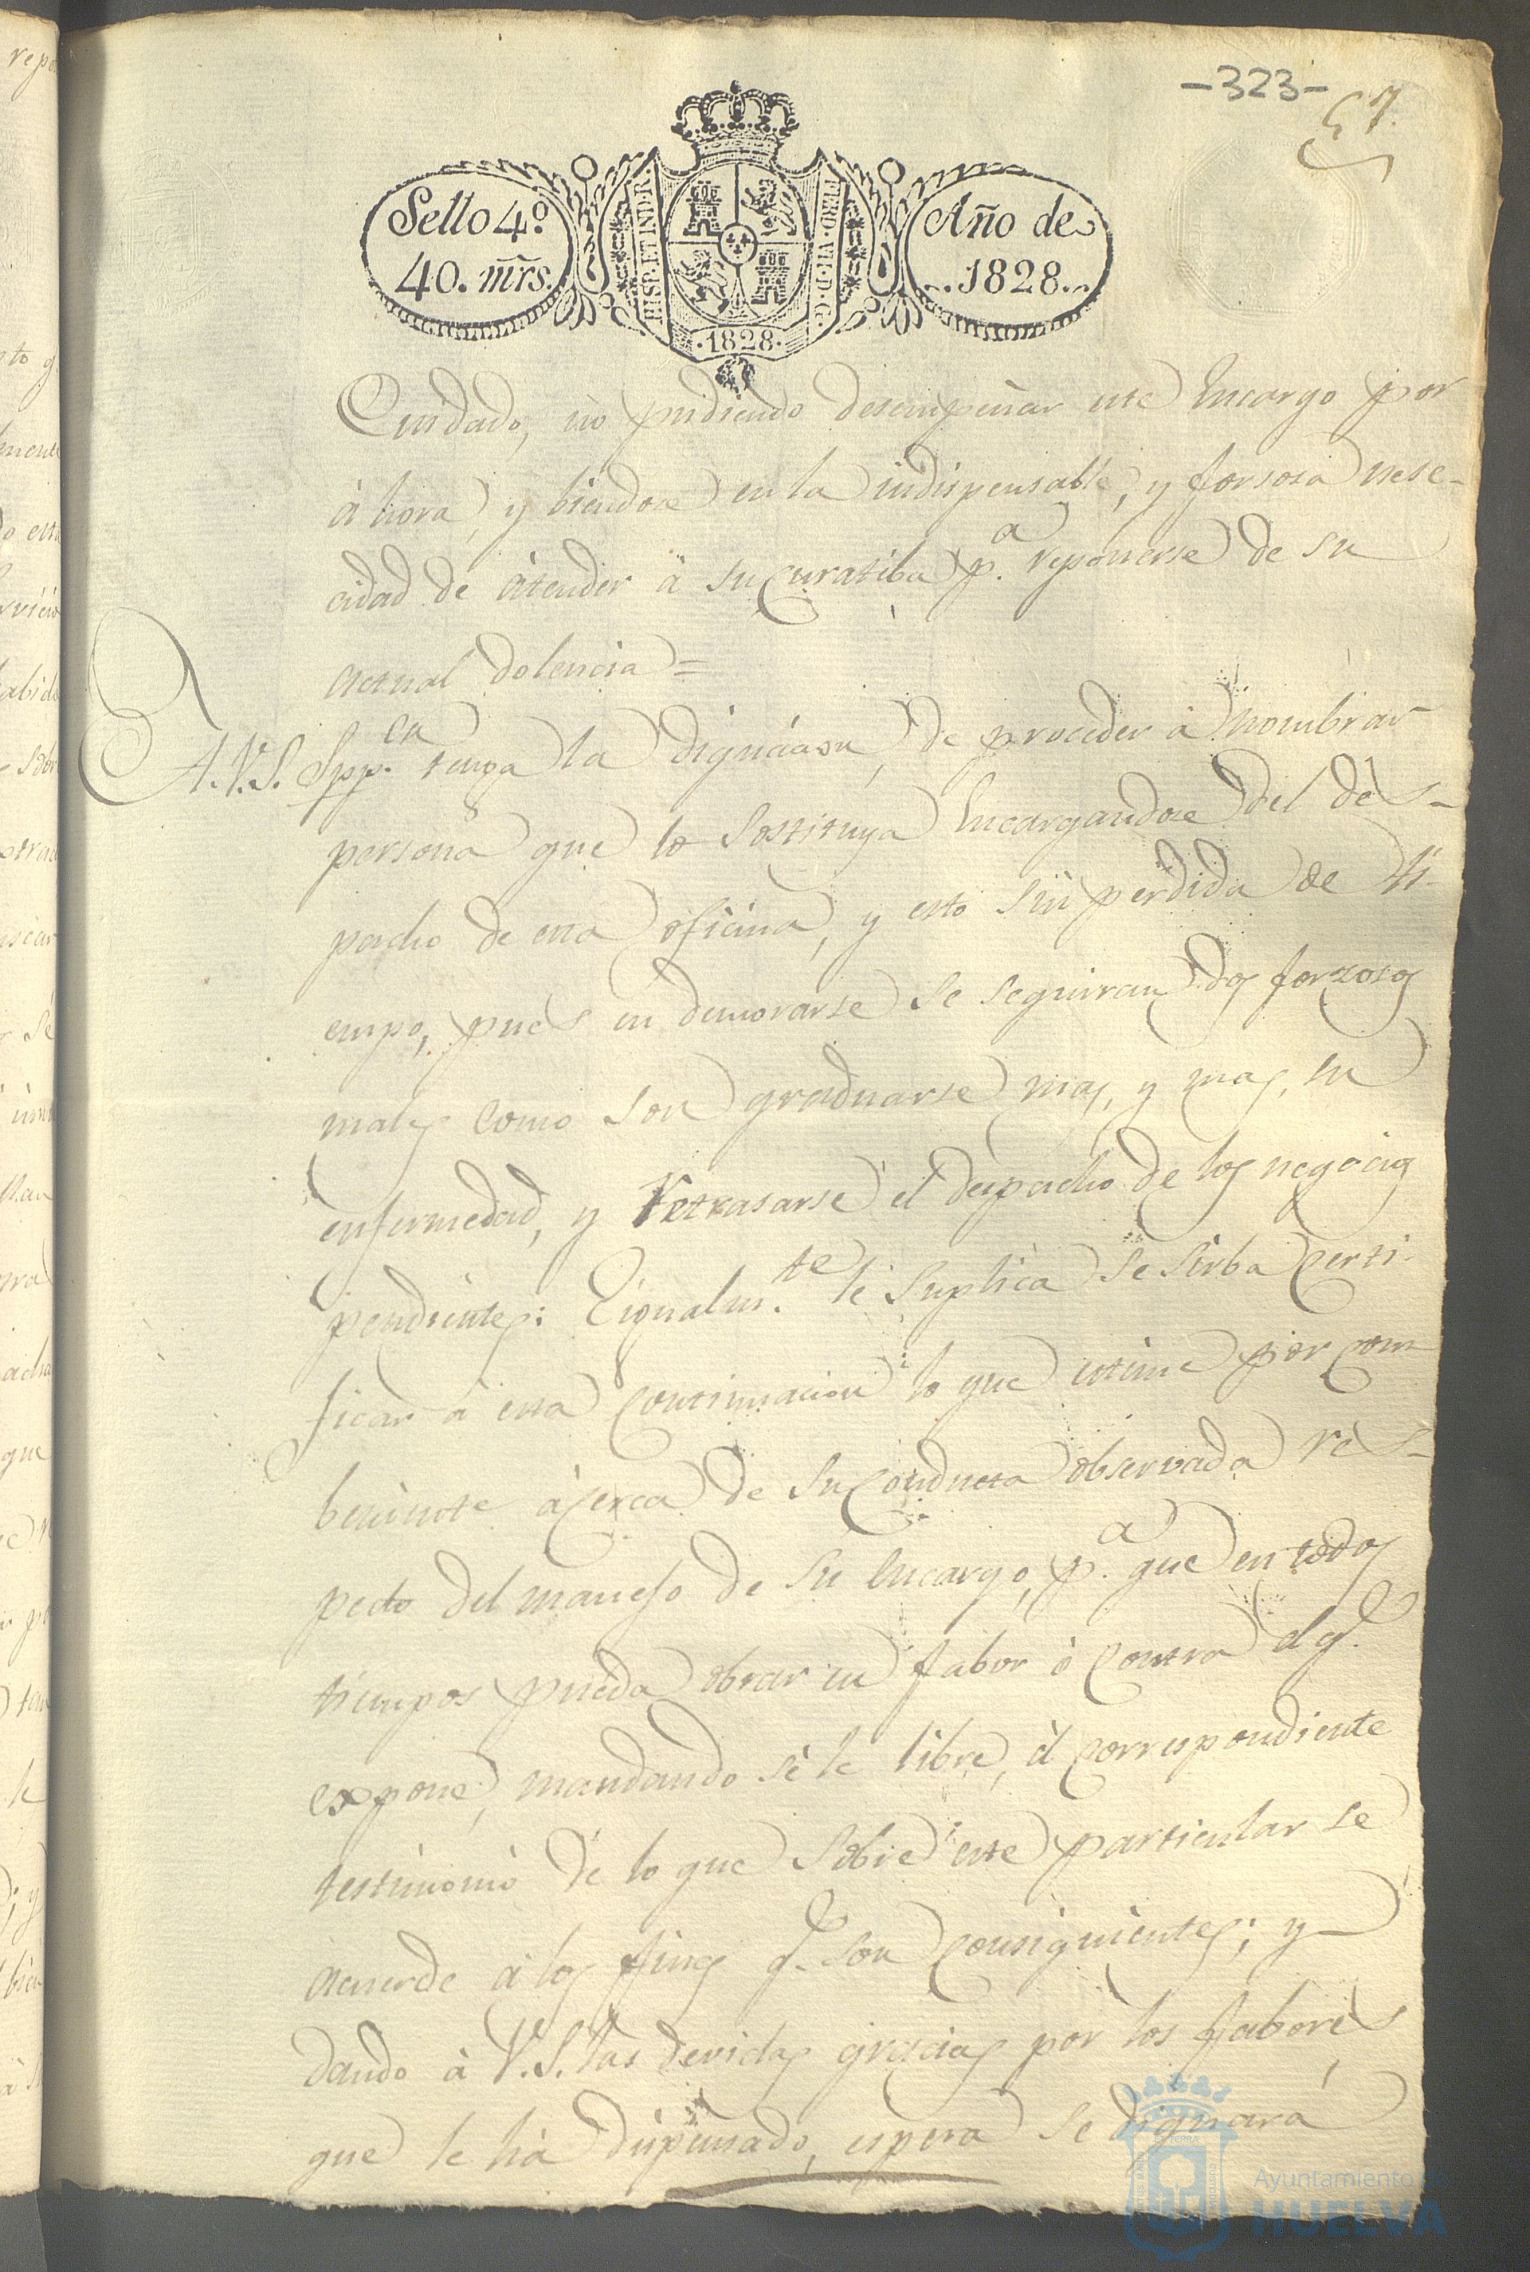 -323-
57.
Sello 4º.
40. mrs.
HISP. ET IND. R.
FERD. VII. D. G.
Año de
1828.
·1828·
Cuidado, no pudiendo desempeñar este Encargo por
ahora, y biendose en la indispensable, y forsosa nese-
cidad de àtender à su Curatiba p.a reponerse de su
actual dolencia=
A. V. S. Spp.ca tenga la dignacion, de proceder à nombrar
persona que lo Sostituya Encargandose del des-
pacho de esta oficina, y esto sin perdida de ti-
empo, pues en demorarse se seguiran dos forzosos
males como son graduarse mas, y mas, su
enfermedad, y Retrasarse el despacho de los negocios
pendientes: Egualm.te le Suplica se sirba Certi-
ficar à esta Continuacion lo que estime por com-
beniente àcerca de su Conducta observada res-
pecto del manejo de su Encargo, p.a que en todos
tiempos pueda obrar en fabor ò Contra el q.e
expone, mandando se le libre, el Correspondiente
testimonio de lo que Sobre este particular se
acuerde à los fines q.e son Consiguientes; y
dando à V. S. las devidas gracias por los fabores
que le hà dispensado, espera se dignará
Ayuntamiento de
HUELVA